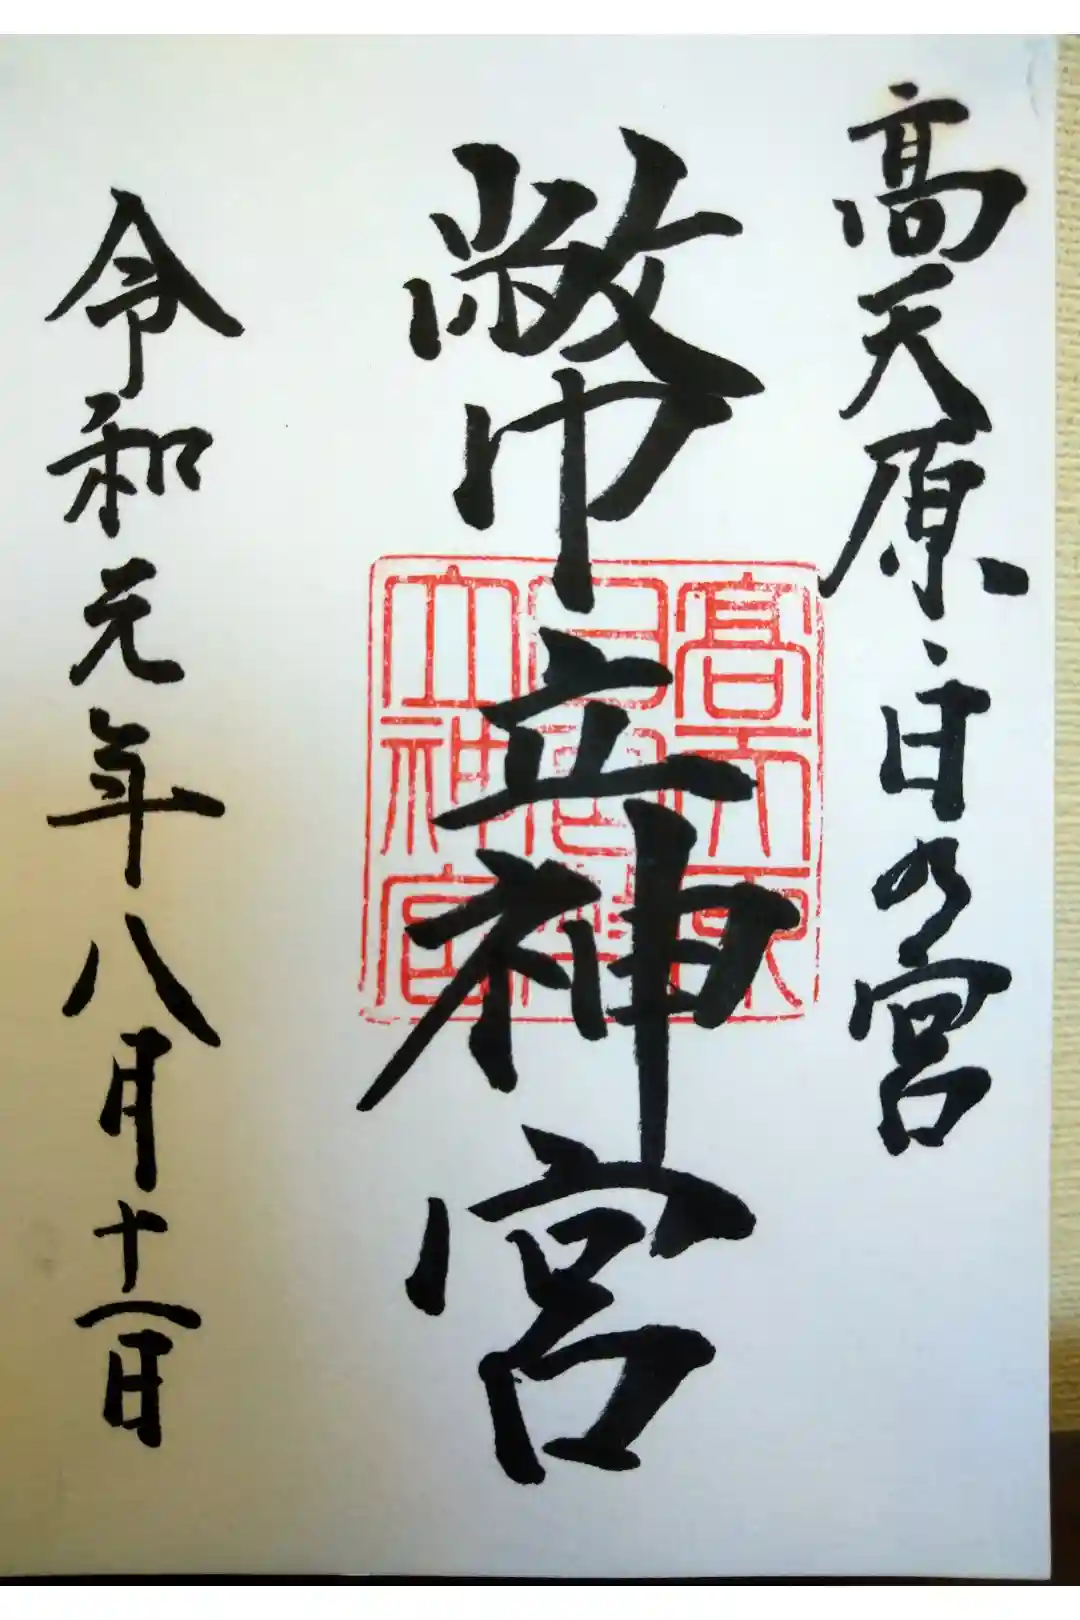 高天原・日乃宮
幣立神宮
令和元年八月十一日
高天原
日宮幣
立神宮